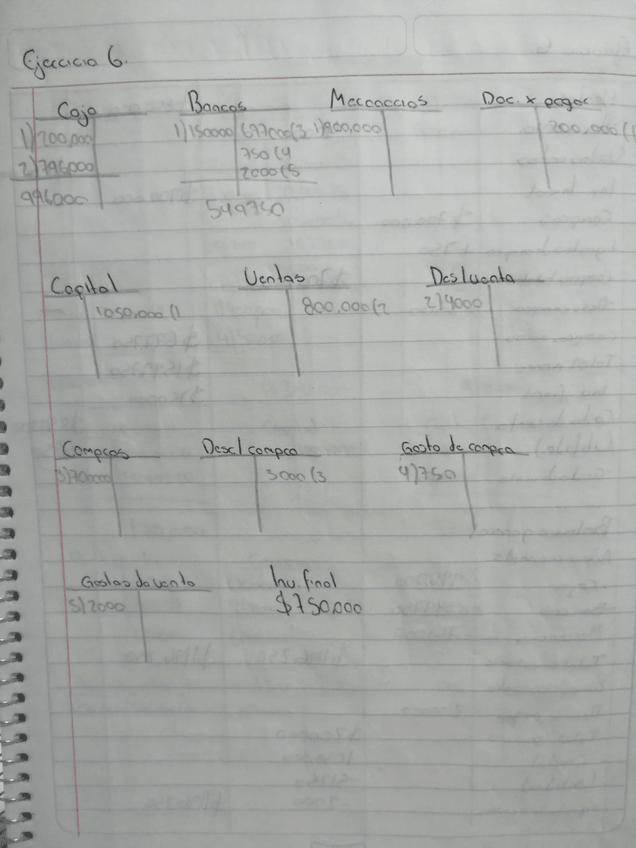 Ejercicio 6.
Caja Bancos Mercancias Doc. x pagar
1)200,000 1)150000 697000(3 1)900,000 200,000(1
2)796000 750(4
2000(5
996000 549750
Capital Ventas Des/venta
1050,000(1 800,000(2 2)4000
Compras Desc/compra Gasto de compra
3)700000 3000(3 4)750
Gastos de venta Inv. final
5)2000 $750.000